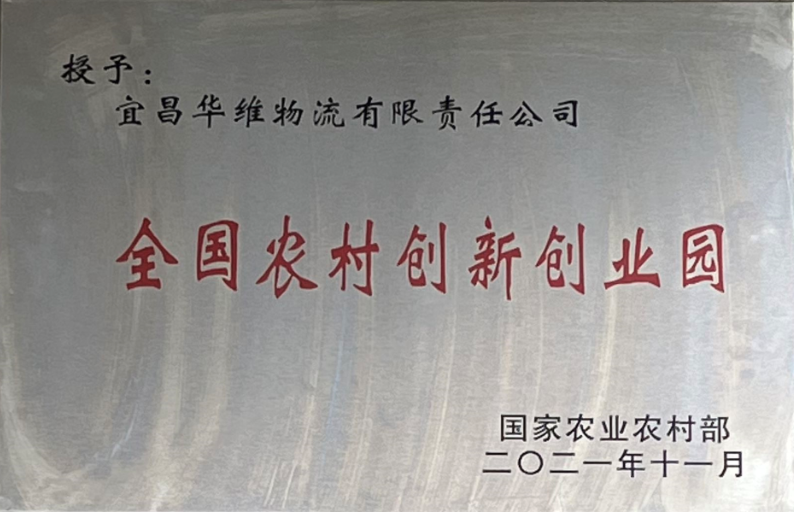 授予：
宜昌华维物流有限责任公司
全国农村创新创业园
国家农业农村部
二〇二一年十一月